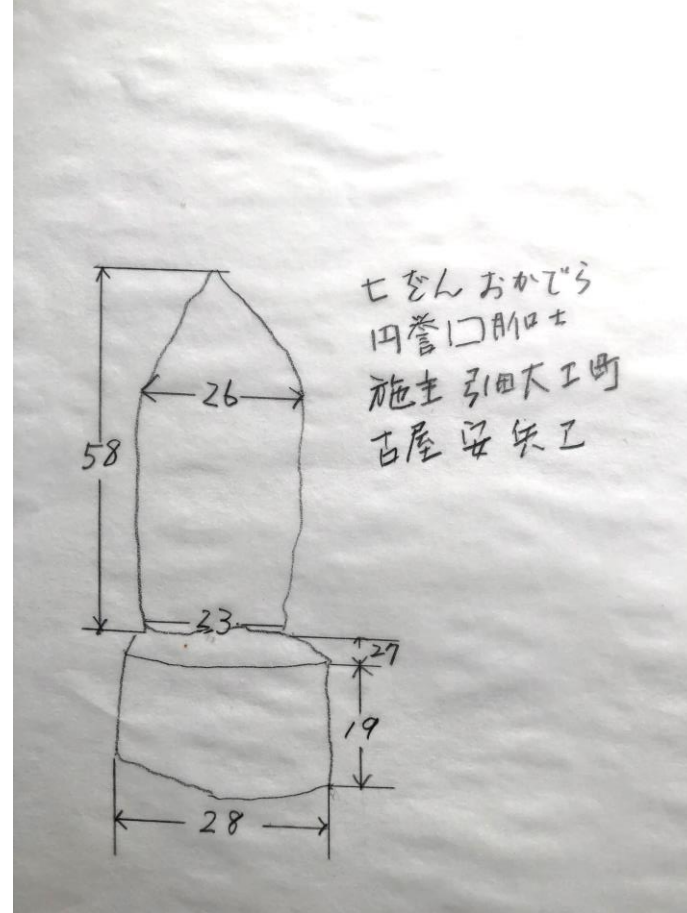 七ばん おかでら
円誉
施主 引田大工町
古屋 安兵ヱ
26
58
23
27
19
28